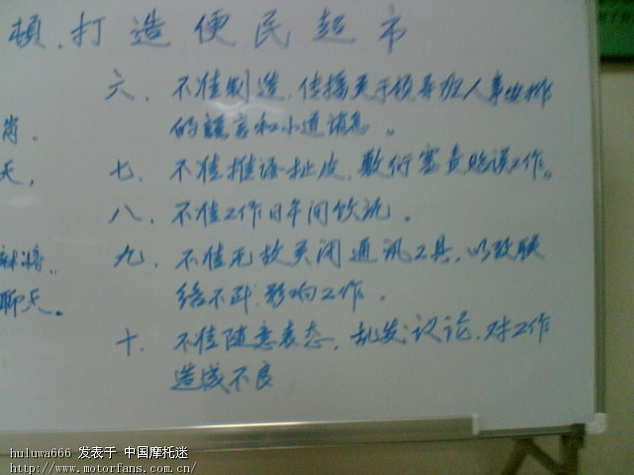 頓、打造便民超市
六、不准制造、传播关于领导班人事安排
的謡言和小道消息。
岗、
天、
七、不准推诿扯皮、敷衍塞责贻误工作。
八、不准工作日午间饮酒。
麻将、
九、不准无故关闭通讯工具，以致联
络不到，影响工作。
聊天。
十、不准随意表态，乱发议论，对工作
造成不良
huluwa666 发表于 中国摩托迷
http://www.motorfans.com.cn/